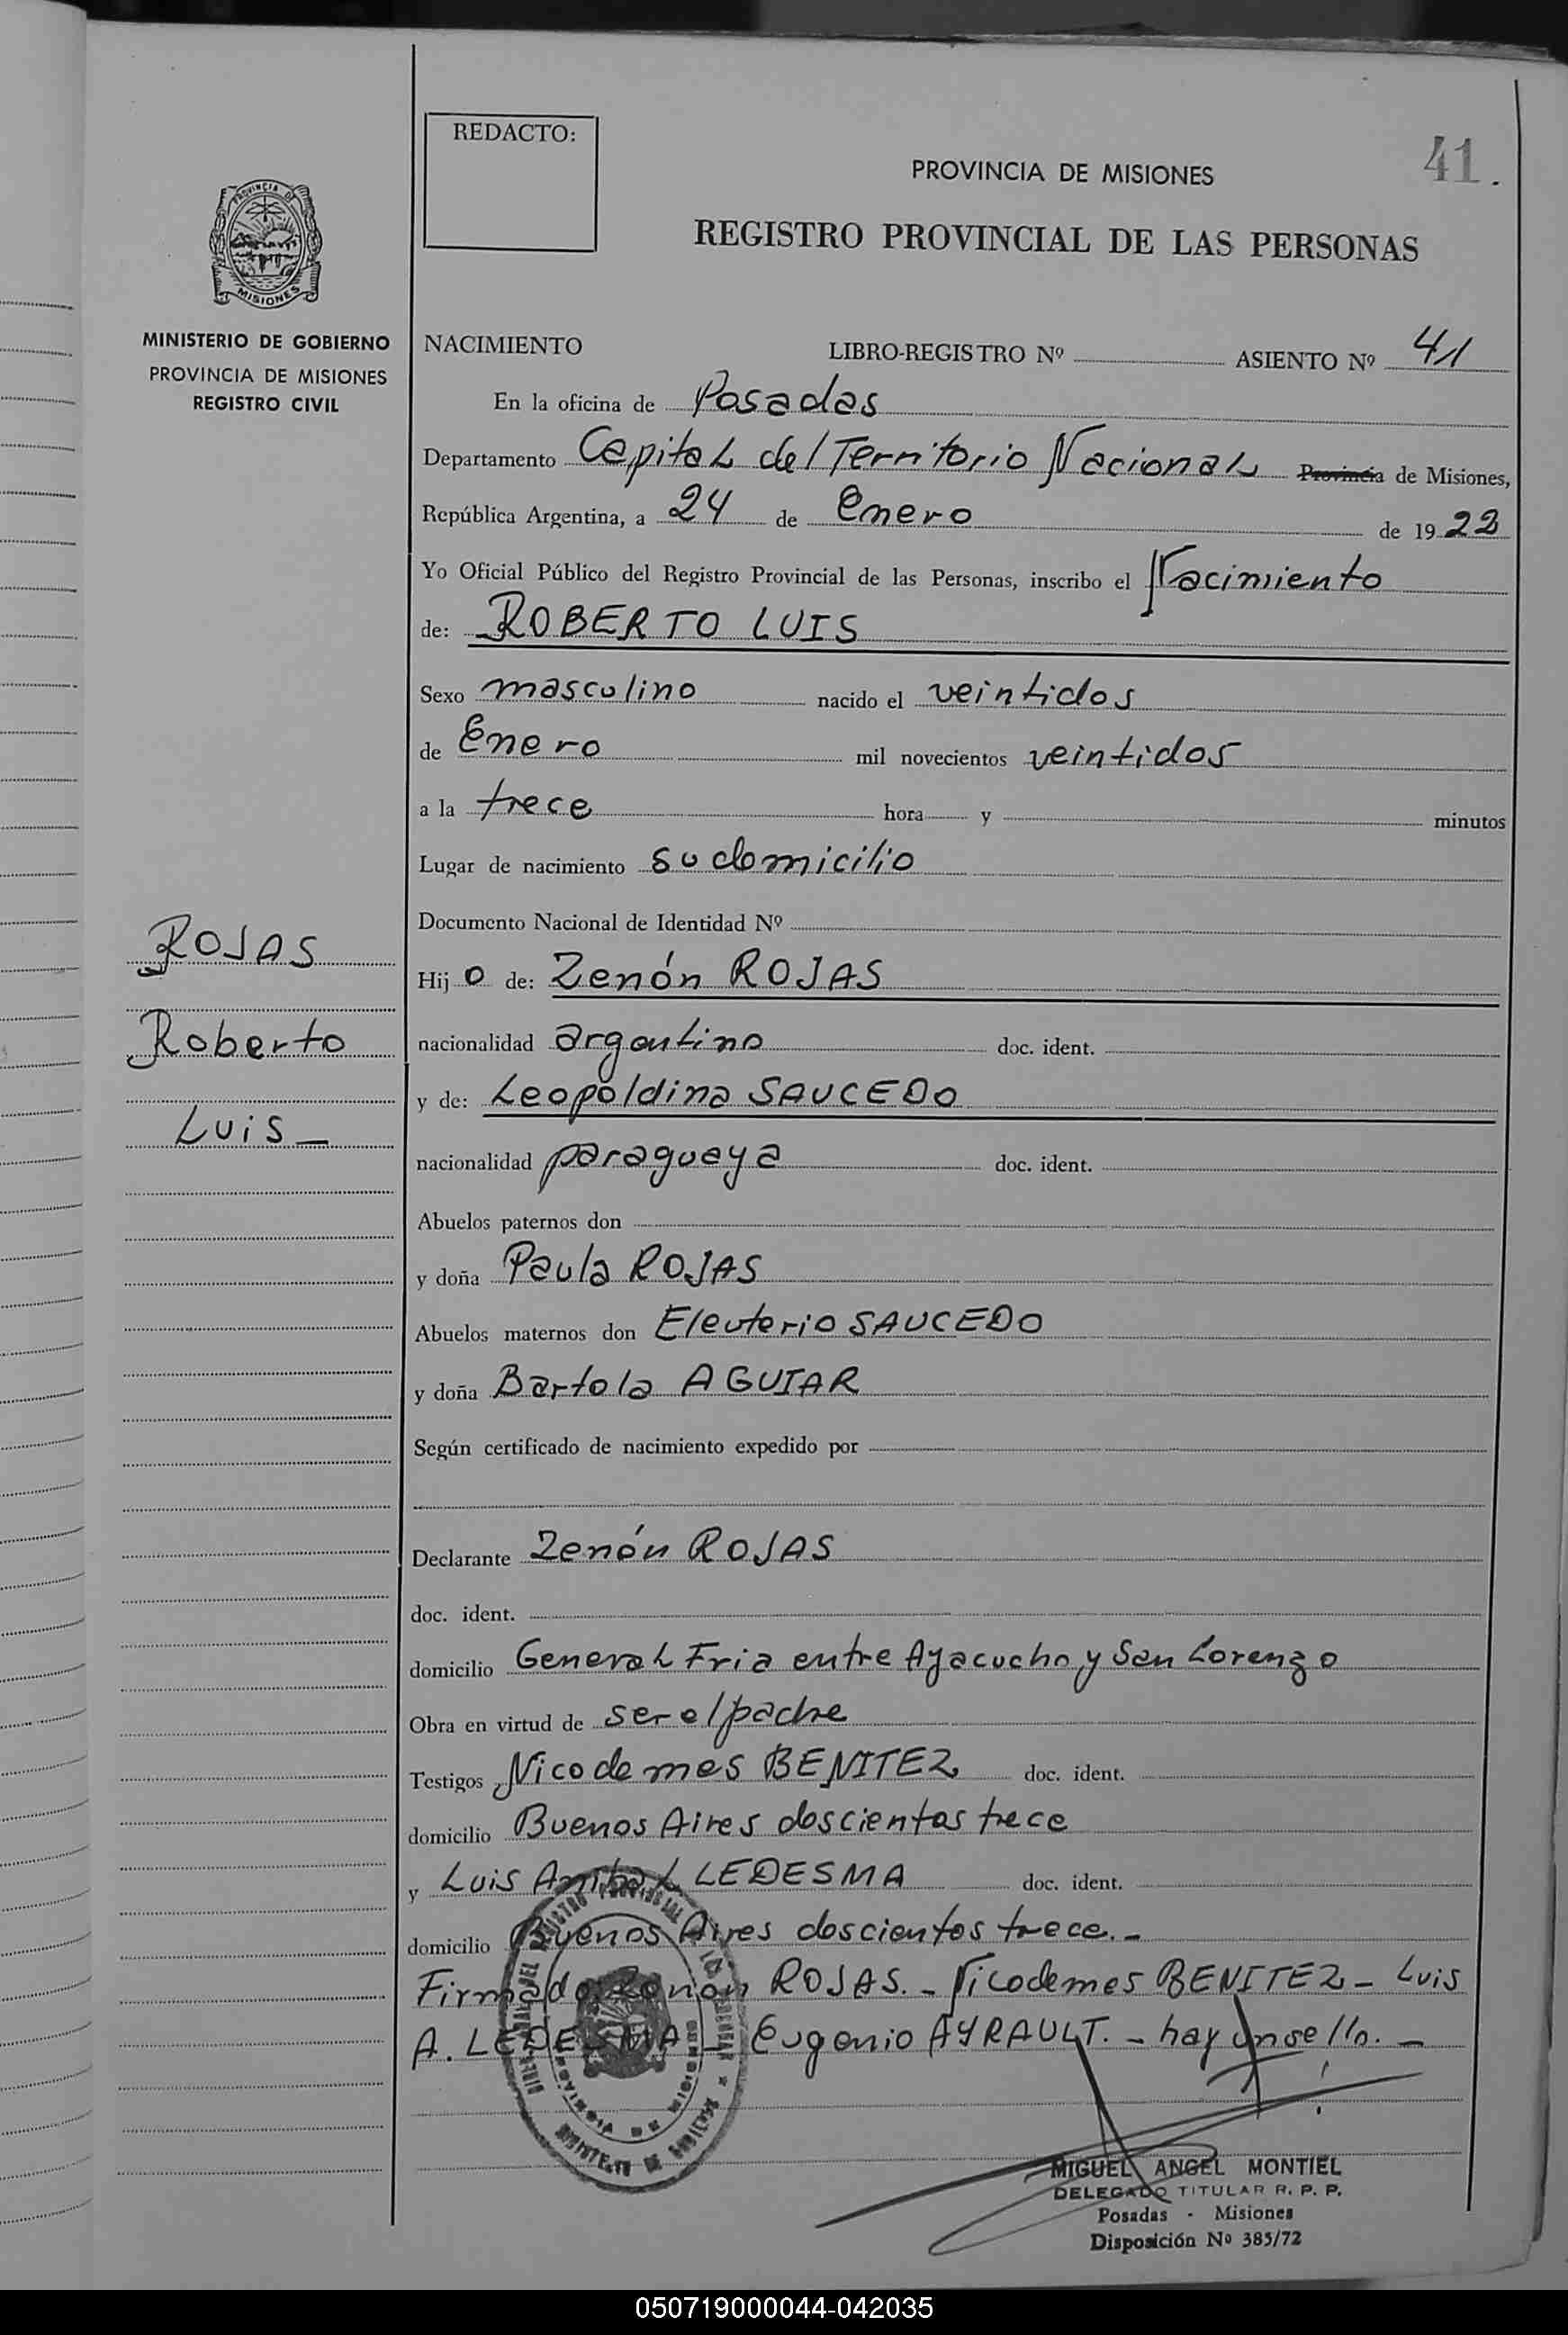 REDACTO:
PROVINCIA DE MISIONES
41.
REGISTRO PROVINCIAL DE LAS PERSONAS
PROVINCIA DE
MISIONES
MINISTERIO DE GOBIERNO
PROVINCIA DE MISIONES
REGISTRO CIVIL
NACIMIENTO LIBRO-REGISTRO Nº ASIENTO Nº 41
En la oficina de Posadas
Departamento Capital del Territorio Nacional Provincia de Misiones,
República Argentina, a 24 de Enero de 1922
Yo Oficial Público del Registro Provincial de las Personas, inscribo el Nacimiento
de: ROBERTO LUIS
Sexo masculino nacido el veintidos
de Enero mil novecientos veintidos
a la trece hora y minutos
Lugar de nacimiento su domicilio
Documento Nacional de Identidad Nº
ROJAS
Roberto
Luis_
Hijo de: Zenón ROJAS
nacionalidad argentino doc. ident.
y de: Leopoldina SAUCEDO
nacionalidad paraguaya doc. ident.
Abuelos paternos don
y doña Paula ROJAS
Abuelos maternos don Eleuterio SAUCEDO
y doña Bartola AGUIAR
Según certificado de nacimiento expedido por
Declarante Zenón ROJAS
doc. ident.
domicilio General Fria entre Ayacucho y San Lorenzo
Obra en virtud de ser el padre
Testigos Nicodemes BENITEZ doc. ident.
domicilio Buenos Aires doscientos trece
y Luis Anibal LEDESMA doc. ident.
domicilio Buenos Aires doscientos trece.-
Firmado Zenón ROJAS.- Nicodemes BENITEZ- Luis
A. LEDESMA- Eugenio AYRAULT.- hay un sello.-
MIGUEL ANGEL MONTIEL
DELEGADO TITULAR R. P. P.
Posadas - Misiones
Disposición Nº 385/72
050719000044-042035